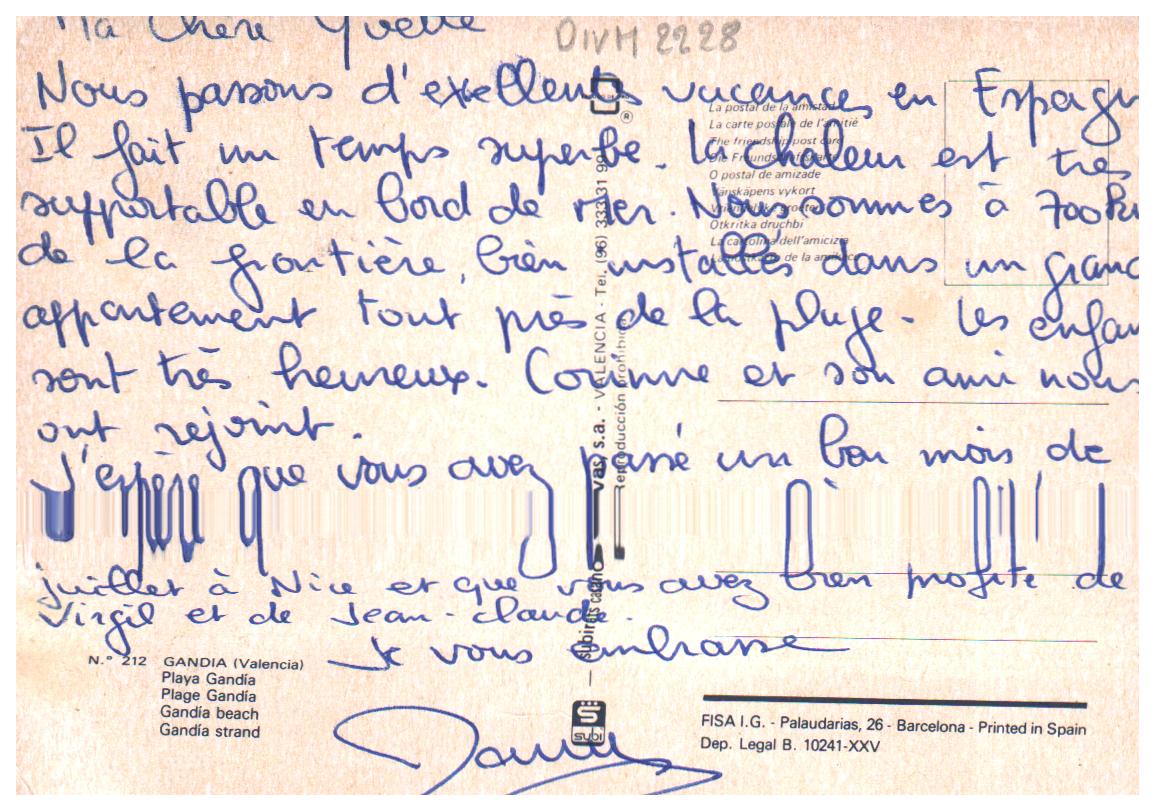 Ma Chère Yvette
DIVM 2228
Nous passons d'exellents vacances en Espagn
Il fait un temps superbe. la chaleur est très
supportable en bord de mer. Nous sommes à 700 k
de la frontière, bien installés dans un grand
appartement tout près de la plage. les enfan
sont très heureux. Corinne et son ami nous
ont rejoint.
J'espère que vous avez passé un bon mois de
juillet à Nice et que vous avez bien profité de
Virgil et de Jean-claude.
Je vous embrasse
La postal de la amistad
La carte postale de l'amitié
The friendship post card
Die Freundschaftskarte
O postal de amizade
Vänskäpens vykort
Otkritka druchbi
La cartolina dell'amicizia
subirats casanovas, s.a. - VALENCIA - Tel. (96) 333 31 99
Reproducción prohibida
N.° 212 GANDIA (Valencia)
Playa Gandía
Plage Gandía
Gandía beach
Gandía strand
SUBI
FISA I.G. - Palaudarias, 26 - Barcelona - Printed in Spain
Dep. Legal B. 10241-XXV